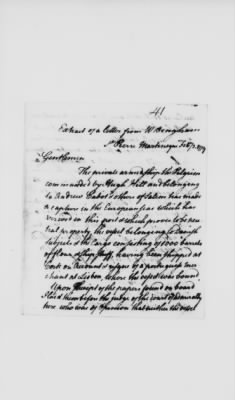 41
Extract of a letter from Wm Bingham
St Pierre Martinique Feby 2 1779
Gentlemen
The private armed ship the Pilgrim
commanded by Hugh Hill and belonging
to Andrew Cabot & others of Salem has made
a capture in the European seas which has
arrived in this port & which proves to be neu
tral property, the vessel belonging to Danish
subjects & the Cargo consisting of 2000 barrels
of flour & Ship Stuff, having been shipped at
Cork on Account & risque of a portuguese mer
chant at Lisbon, where the vessel was bound
Upon receipt of the papers found on board
I laid them before the judge of the Court of Admiralty
here who was of opinion that neither the vessel